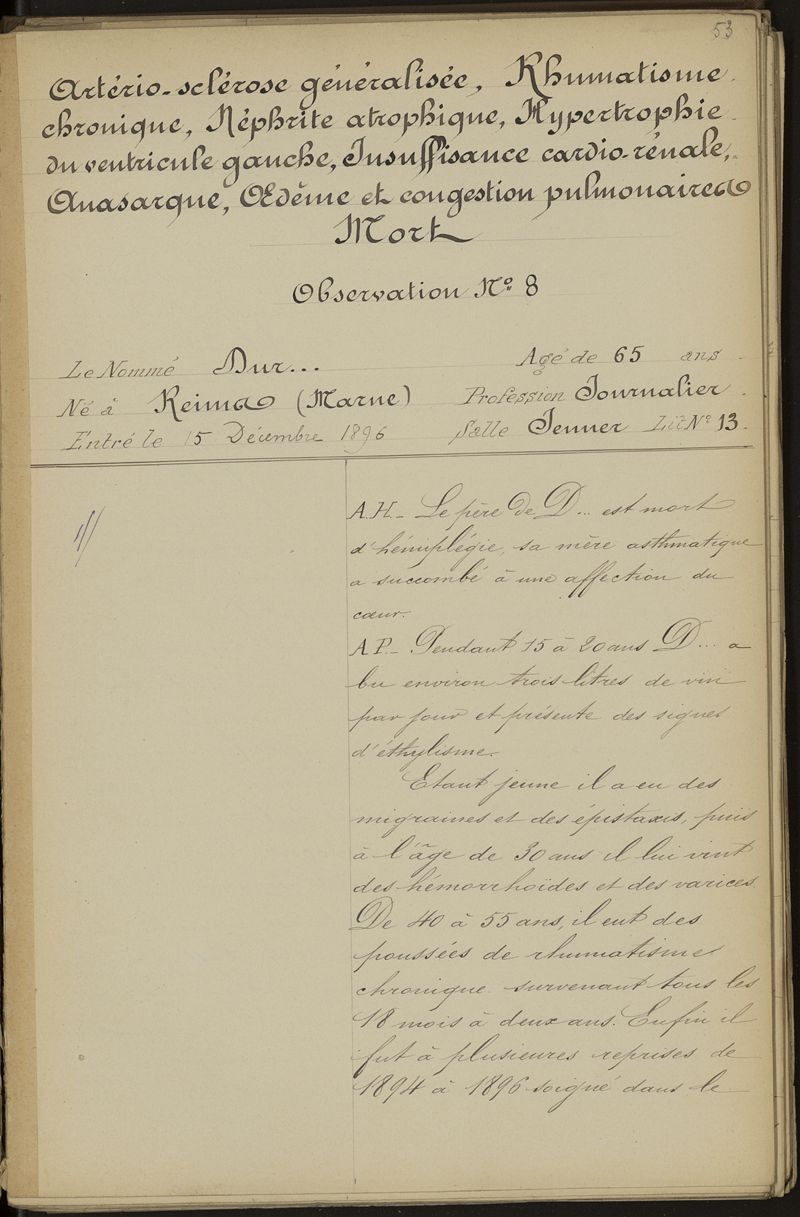 53
Artério-sclérose généralisée, Rhumatisme
chronique, Néphrite atrophique, Hypertrophie
du ventricule gauche, Insuffisance cardio-rénale,
Anasarque, Œdème et congestion pulmonaires
Mort
Observation No. 8
Le Nommé Dur... Agé de 65 ans
Né à Reims (Marne) Profession Journalier
Entré le 15 Décembre 1896 Salle Jenner Lit No 13
A.H_ Le père de D... est mort
d'hémiplégie, sa mère asthmatique
a succombé à une affection du
cœur.
A.P_ Pendant 15 à 20 ans D... a
bu environ trois litres de vin
par jour et présente des signes
d'éthylisme.
Etant jeune il a eu des
migraines et des épistaxis, puis
à l'âge de 30 ans il lui vint
des hémorrhoïdes et des varices.
De 40 à 55 ans, il eut des
poussées de rhumatisme
chronique survenant tous les
18 mois à deux ans. Enfin il
fut à plusieures reprises de
1894 à 1896 soigné dans le